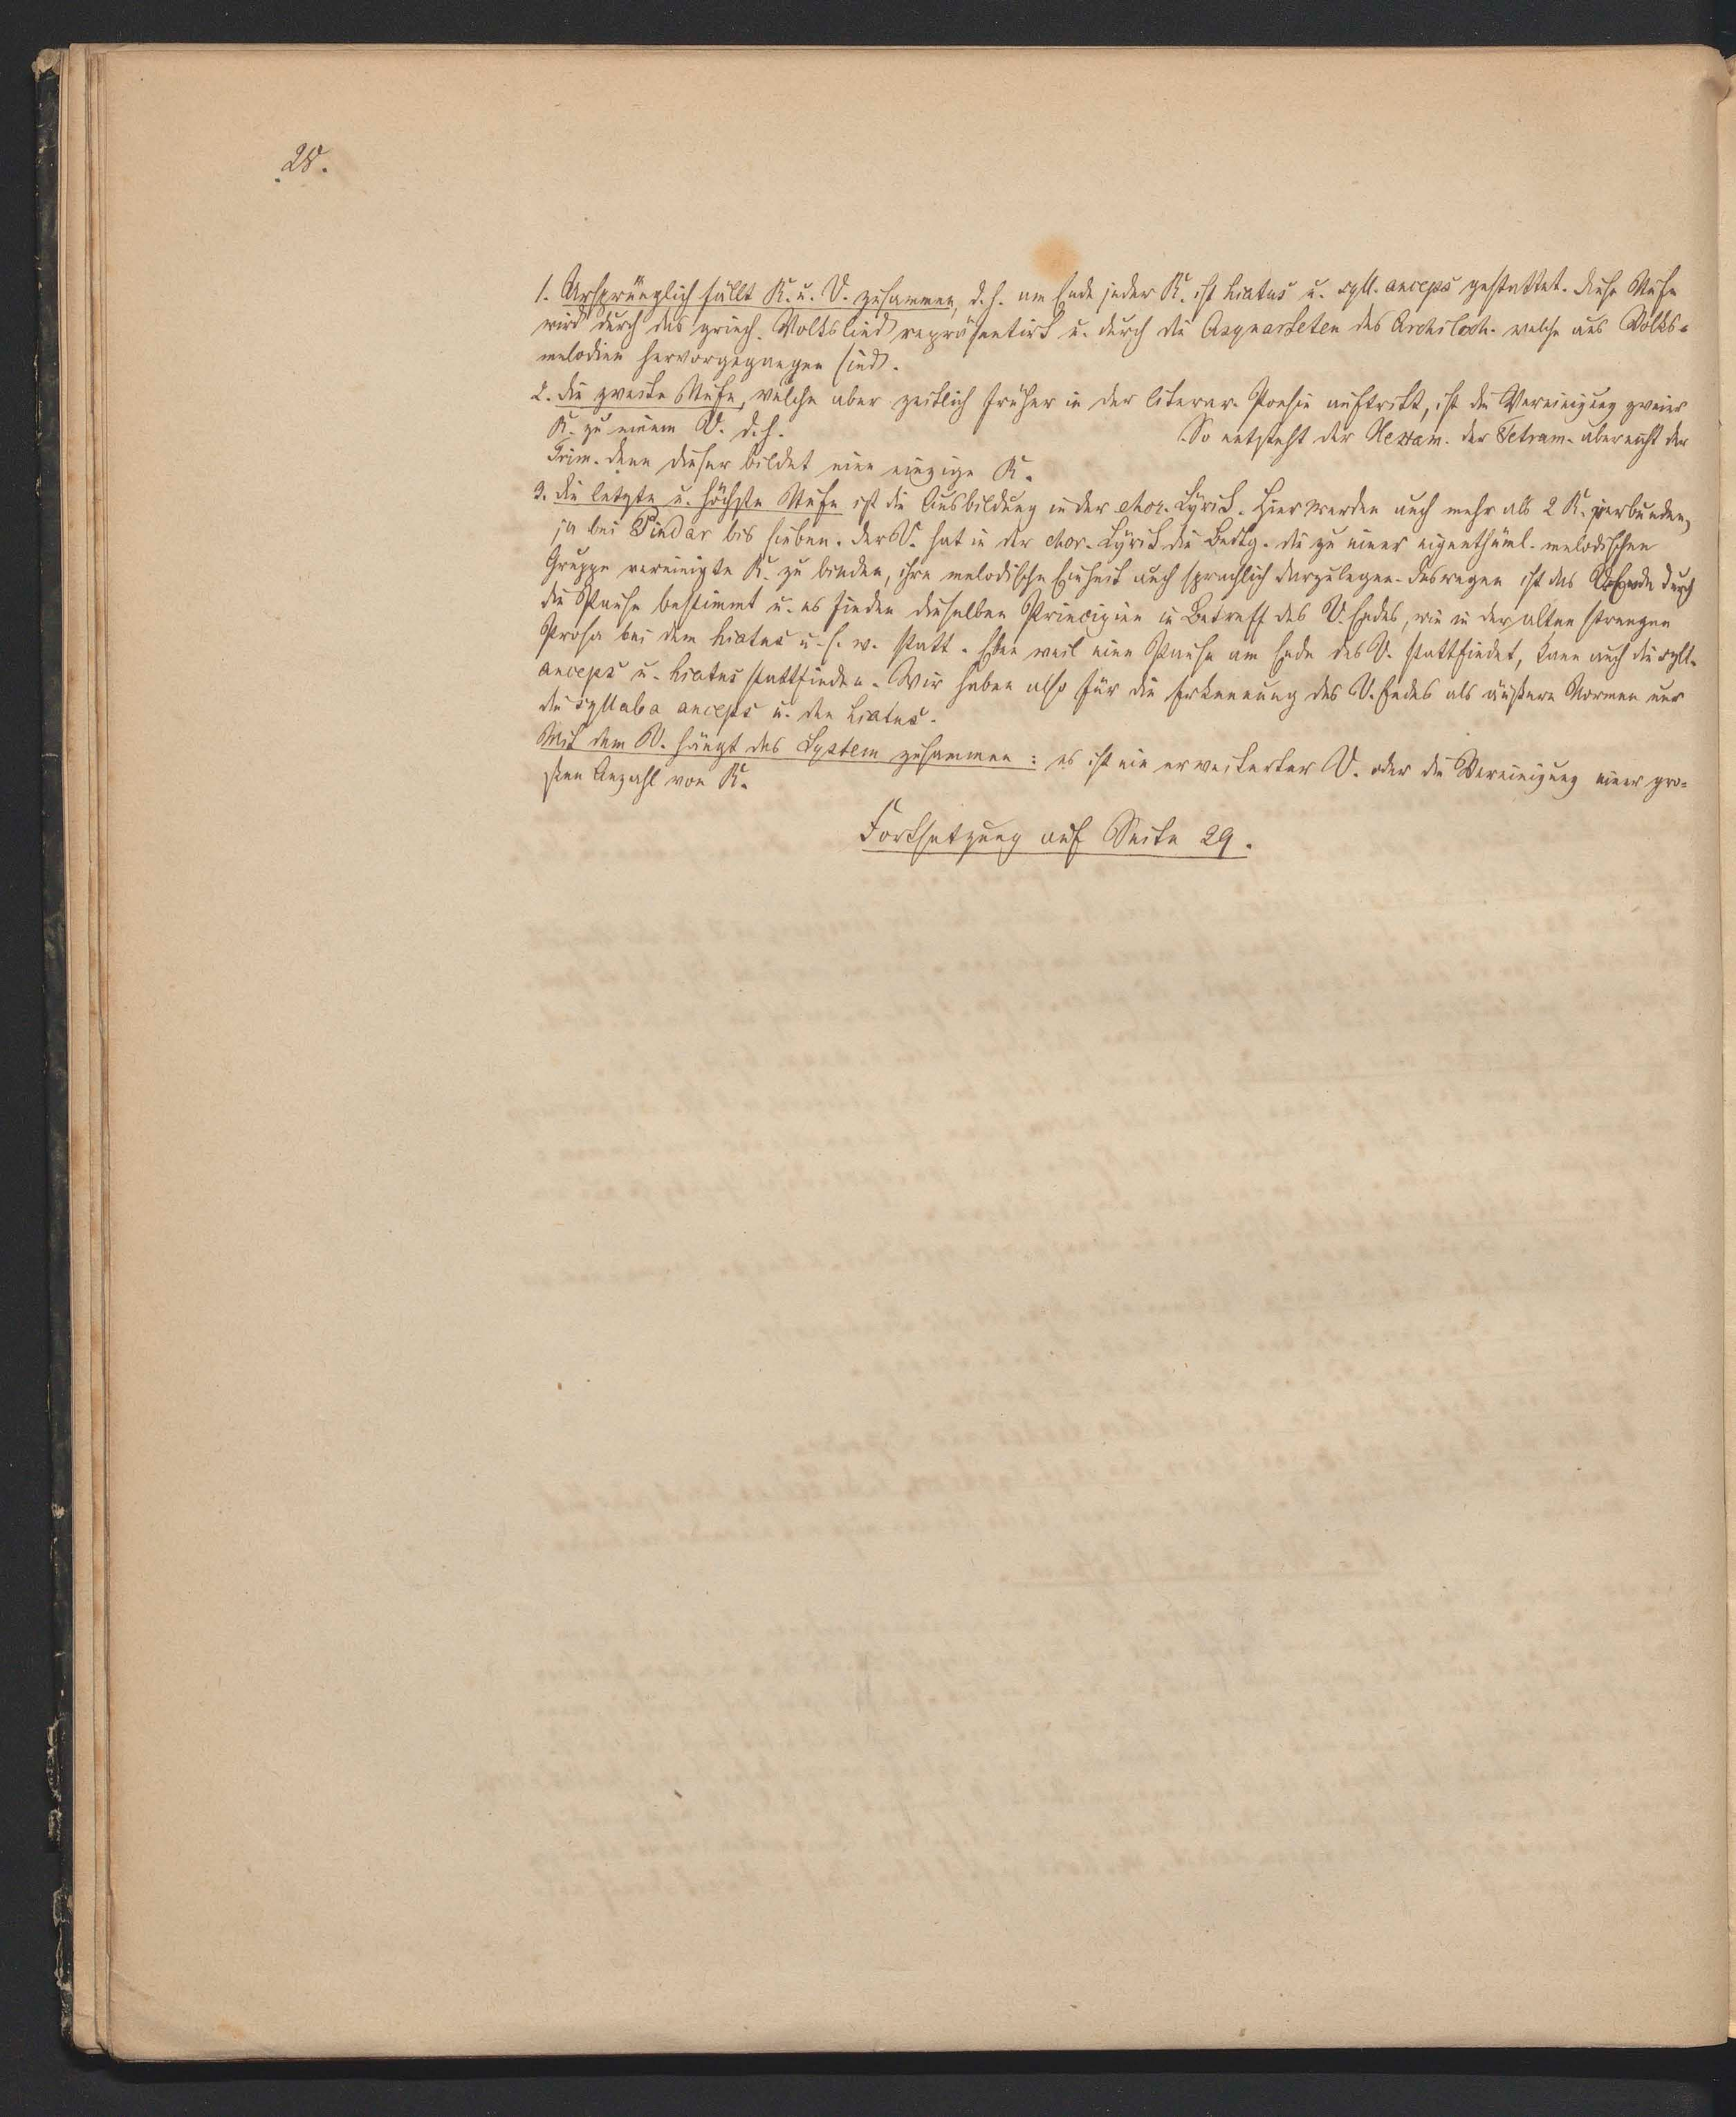 28.
1. Ursprünglich fällt K. u. V. zusammen, d. h. am Ende jeder K. ist hiatus u. syll. anceps gestattet. Diese Stufe
wird durch das griech. Volkslied repräsentirt u. durch die Asynarteten des Archiloch. welche aus Volks-
melodien hervorgegangen sind.
2. Die zweite Stufe, welche aber zeitlich früher in der literar. Poesie auftritt, ist die Vereinigung zweier
K. zu einem V. d. h. So entsteht der Hexam. der Tetram. aber nicht der
Trim. denn dieser bildet eine einzige K.
3. Die letzte u. höchste Stufe ist die Ausbildung in der chor. Lyrik. Hier werden auch mehr als 2 K. verbunden,
ja bei Pindar bis sieben. Der V. hat in der chor. Lyrik die Bedtg. die zu einer eigenthüml. melodischen
Gruppe vereinigte K. zu binden, ihre melodische Einheit auch sprachlich darzulegen. Deswegen ist das V. Ende durch
die Pause bestimmt u. es finden dieselben Principien in Betreff des V. Endes, wie in der alten strengen
Prosa bei dem hiatus u. s. w. statt. Eben weil eine Pause am Ende des V. stattfindet, kann auch die syll.
anceps u. hiatus stattfinden. Wir haben also für die Erkennung des V. Endes als äußere Normen nur
die syllaba anceps u. den hiatus.
Mit dem V. hängt das System zusammen: es ist ein erweiterter V. oder die Vereinigung einer gro-
ßen Anzahl von K.
Fortsetzung auf Seite 29.